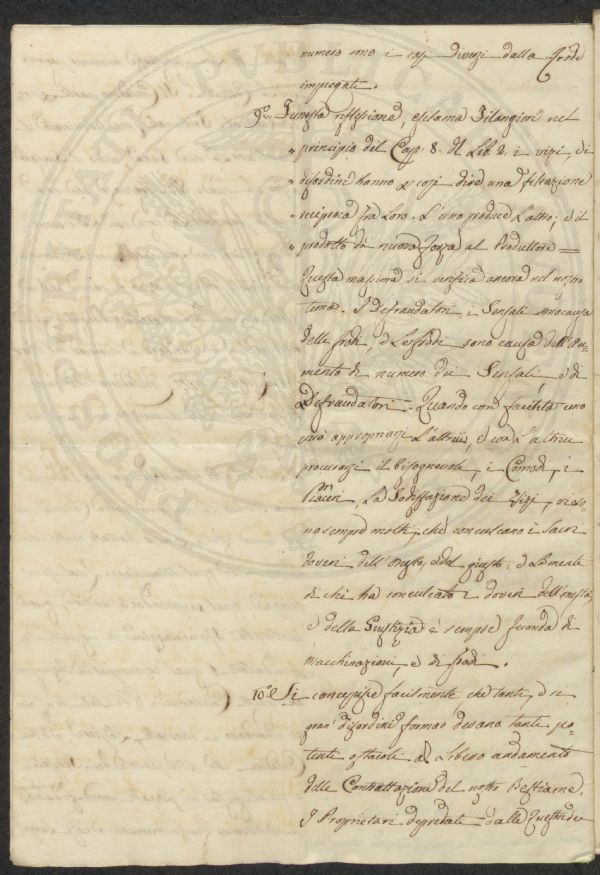 numero sono i casi diversi dalla frode
impiegati.
9.o Funesta riflessione, esclama Filangieri nel
„ principio del Cap. 8. del Lib. 2. i vizi, i di
„ disordini hanno p così dire una filiazione
„ reciproca fra Loro. L'uno produce L'altro; e il
„ prodotto dà nuova forza al Produttore =
Questa massima si verifica ancora nel nostro
tema. I Defraudatori, i Sensali sono causa
delle frodi, e Le frodi sono causa dell'Au-
mento di numero dei Sensali, e di
Defraudatori. Quando con facilità uno
può appropriarsi L'altrui, e con L'altrui
procurarsi il bisognevole, i Comodi, i
Piaceri, La Sodisfazione dei Vizi, ve ne so-
no sempre molti, che conculcano i Sacri
doveri dell'Onesto, e del giusto: e La mente
di chi ha conculcato i doveri dell'onestà,
e della Giustizia è sempre feconda di
macchinazioni, e di frodi.
10.o Si concepisce facilmente, che tanti, e si
gran disordini formar devano tanti po-
tenti ostacoli al Libero andamento
delle Contrattazioni del nostro Bestiame.
I Proprietari depredati dalle
PROSPERITATI PUBLICAE